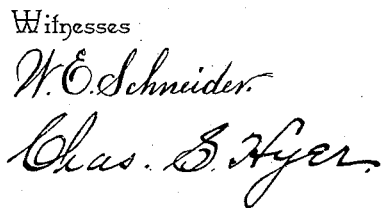 Witnesses
W. E. Schneider.
Chas. S. Hyer.